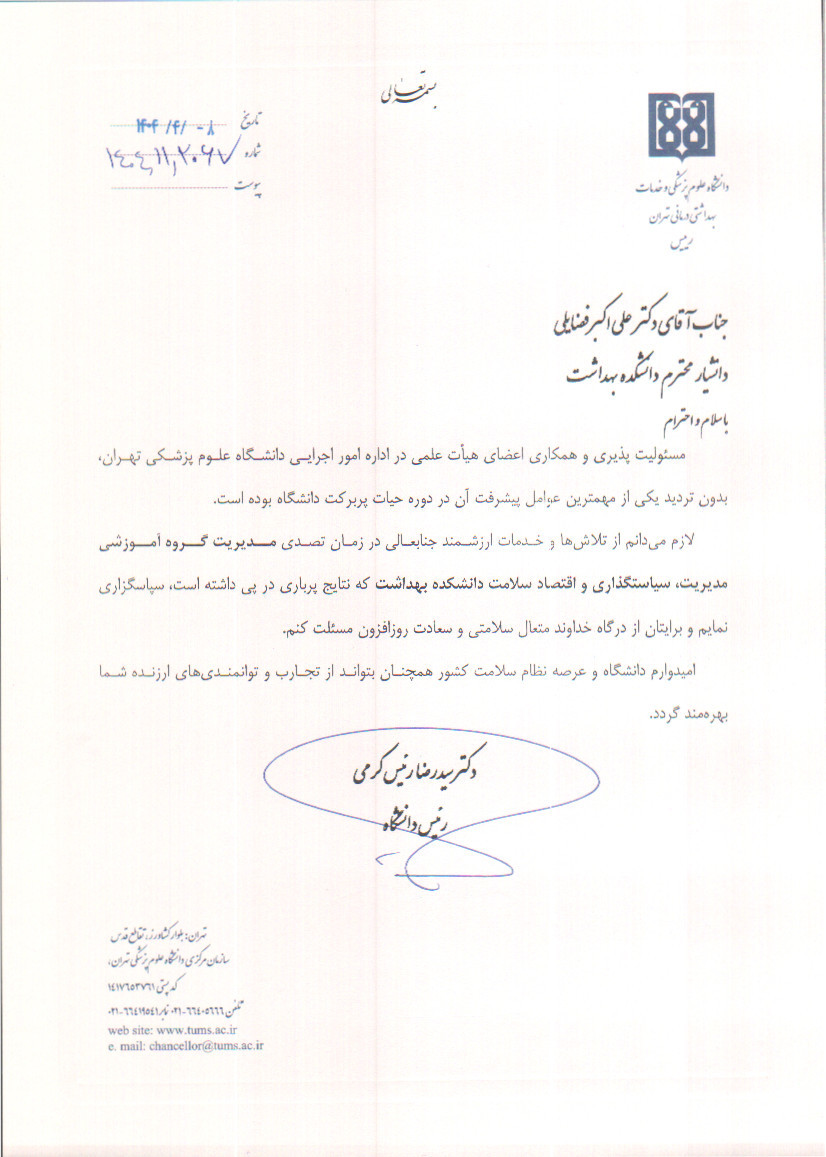 بسمه تعالی
تاریخ ۸ - /۴/ ۱۴۰۴
شماره ۱۴۰۴,۱۱,۲۰۶۷
پیوست
دانشگاه علوم پزشکی و خدمات
بهداشتی درمانی تهران
رییس
جناب آقای دکتر علی اکبر فضایلی
دانشیار محترم دانشکده بهداشت
باسلام و احترام
مسئولیت پذیری و همکاری اعضای هیأت علمی در اداره امور اجرایی دانشگاه علوم پزشکی تهران،
بدون تردید یکی از مهمترین عوامل پیشرفت آن در دوره حیات پربرکت دانشگاه بوده است.
لازم می‌دانم از تلاش‌ها و خدمات ارزشمند جنابعالی در زمان تصدی مدیریت گروه آموزشی
مدیریت، سیاستگذاری و اقتصاد سلامت دانشکده بهداشت که نتایج پرباری در پی داشته است، سپاسگزاری
نمایم و برایتان از درگاه خداوند متعال سلامتی و سعادت روزافزون مسئلت کنم.
امیدوارم دانشگاه و عرصه نظام سلامت کشور همچنان بتواند از تجارب و توانمندی‌های ارزنده شما
بهره‌مند گردد.
دکتر سید رضا رئیس کرمی
رئیس دانشگاه
تهران: بلوار کشاورز، تقاطع قدس
سازمان مرکزی دانشگاه علوم پزشکی تهران،
کدپستی ۱۴۱۷۶۵۳۷۶۱
تلفن ۶۶۴۰۵۶۶۶-۰۲۱ نمابر ۶۶۴۱۹۵۴۱-۰۲۱
web site: www.tums.ac.ir
e. mail: chancellor@tums.ac.ir